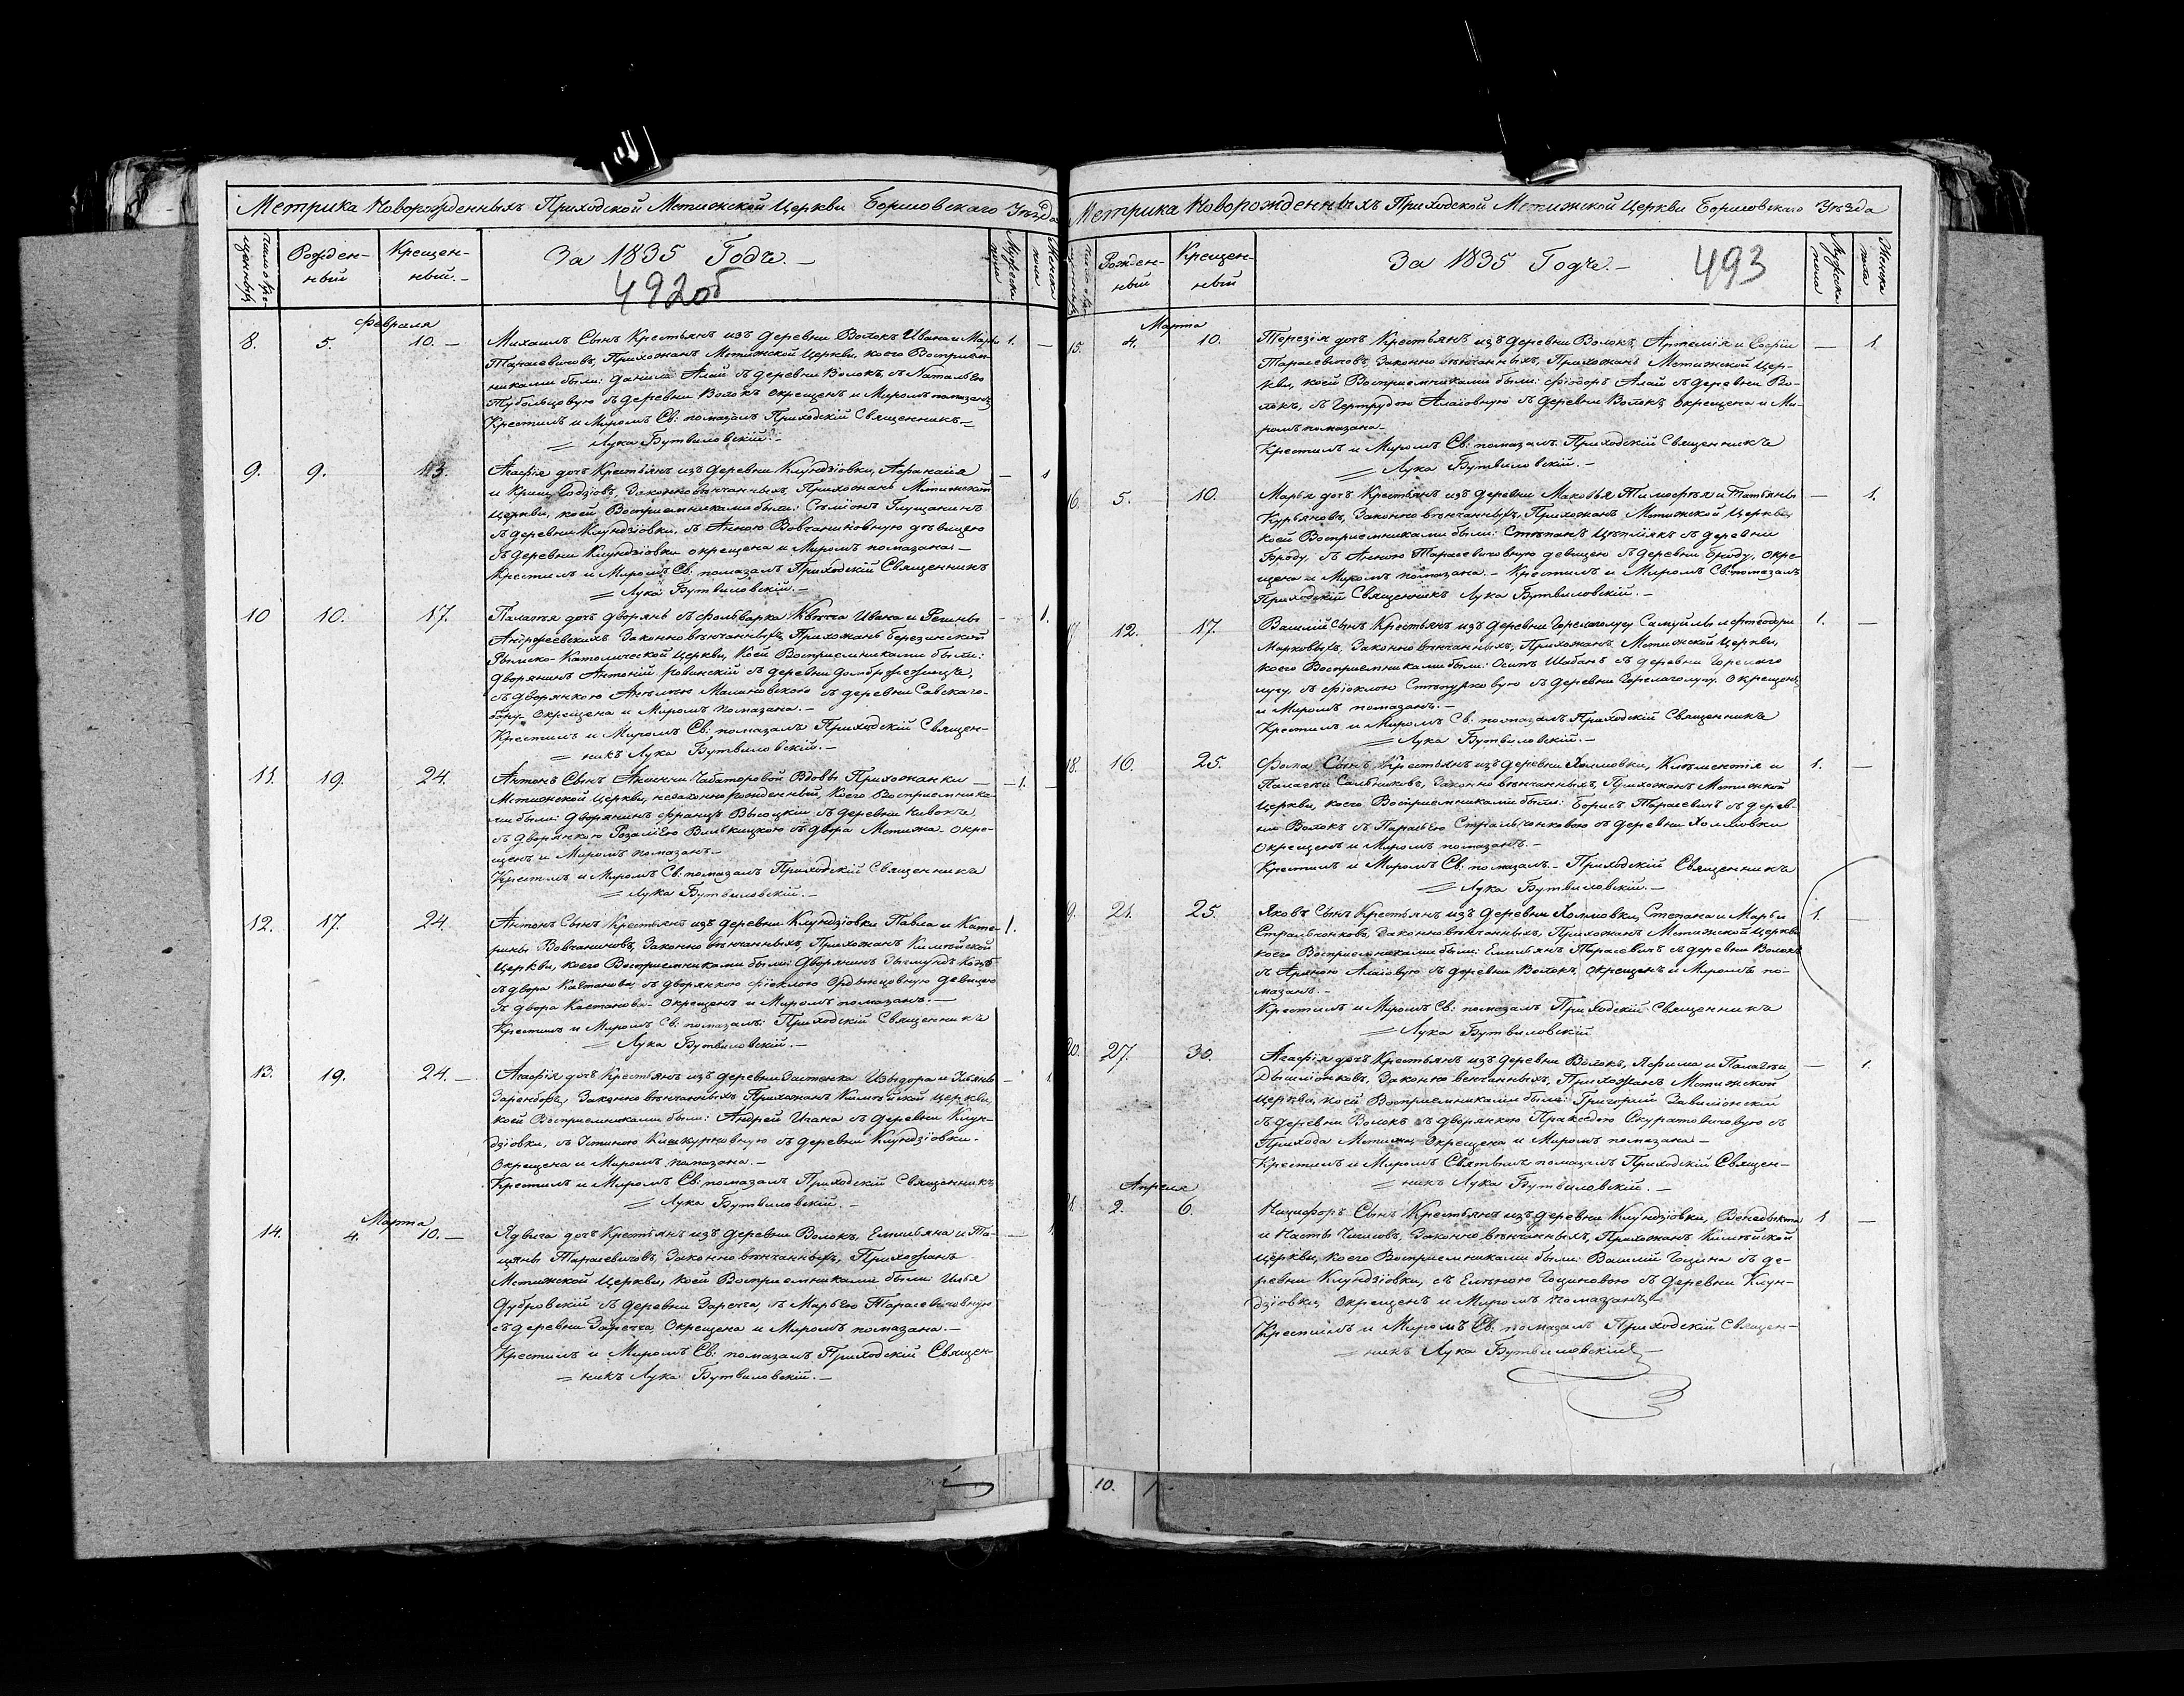 Метрика Новорожденныхъ Приходской Мстижской Церкви Борисовскаго Уѣзда
Рожден-
ный
Крещен-
ный.-
За 1835 Годъ.-
Мужеска
пола
Женска
пола
492об
Февраля
8. 5. 10.- Михаилъ Сынъ Крестьянъ изъ деревни Волокъ Ивана и Марьи 1. -
Тарасевичовъ, Прихожанъ Мстижской Церкви, коего Восприем-
никами были: Данила Алай съ деревни Волокъ, съ Натальею
съ деревни Волокъ окрещенъ и Миромъ помазанъ
Крестилъ и Миромъ Св: помазалъ Приходскій Священникъ
= Лука Бутвиловскій.-
9. 9. 13. Агафія дочъ Крестьянъ изъ деревни Клундзіовки, Афанасія - 1
и Законновѣнчанныхъ, Прихожанъ Мстижской
Церкви, коей Восприемниками были: Сѣміонъ Глущанинъ
съ деревни Клундзіовки, съ Анною Вовчаниновную дѣвицею
съ деревни Клундзіовки окрещена и Миромъ помазана.-
Крестилъ и Миромъ Св: помазалъ Приходскій Священникъ
= Лука Бутвиловскій.-
10 10. 17. Палагѣя дочъ дворянъ съ фольварка Ивана и Регины - 1.
Андржеевскихъ Законновѣнчанныхъ, Прихожанъ Березинской
Римско-Католической Церкви, Коей Восприемниками были:
дворянинъ Антоній съ деревни
съ дворянкою Анѣлею Малиновскою съ деревни Савскаго-
бору. Окрещена и Миромъ помазана.-
Крестилъ и Миромъ Св: помазалъ Приходскій Священ-
= никъ Лука Бутвиловскій.-
11. 19. 24. Антонъ Сынъ Вдовы Прихожанки - 1. -
Мстижской Церкви, незаконнорожденный, Коего Восприемника-
ми были: дворянинъ Францъ Высоцкій съ деревни
съ дворянкою Розаліею съ двора Мстижа. Окре-
щенъ и Миромъ помазанъ.-
Крестилъ и Миромъ Св: помазалъ Приходскій Священникъ
= Лука Бутвиловскій.-
12. 17. 24. Антонъ Сынъ Крестьянъ изъ деревни Клундзіовки Павла и Кате- 1.
рины Вовчаниновъ, Законновѣнчанныхъ, Прихожанъ
Церкви, коего Восприемниками были: Дворянинъ
съ двора съ дворянкою Фіоклою девицею
съ двора Окрещенъ и Миромъ помазанъ.-
Крестилъ и Миромъ Св: помазалъ: Приходскій Священникъ
= Лука Бутвиловскій.-
13. 19. 24.- Агафія дочъ Крестьянъ изъ деревни Застенка Изыдора и Ульяны - 1.
Законновѣнчанныхъ Прихожанъ Церкви,
коей Восприемниками были: Андрей съ деревни Клун-
дзіовки, съ съ деревни Клундзіовки.
Окрещена и Миромъ помазана.-
Крестилъ и Миромъ Св: помазалъ Приходскій Священникъ
= Лука Бутвиловскій.-
Марта
14. 4. 10.- Ядвига дочъ Крестьянъ изъ деревни Волокъ, Емильяна и Та- - 1.
цяны Тарасевичовъ, Законновѣнчанныхъ, Прихожанъ
Мстижской Церкви, коей Восприемниками были: Илья
Дубровскій съ деревни Заречча, съ Марьею Тарасевичовную
съ деревни Заречча, Окрещена и Миромъ помазана.-
Крестилъ и Миромъ Св: помазалъ Приходскій Священ-
= никъ Лука Бутвиловскій.-
Метрика Новорожденныхъ Приходской Мстижской Церкви Борисовскаго Уѣзда
Рожден-
ный
Крещен-
ный
За 1835 Годъ.-
493
Мужеска
пола
Женска
пола
Марта
15. 4. 10. Терезія дочъ Крестьянъ изъ деревни Волокъ, Артемія и Софіи - 1.
Тарасевичовъ, Законновѣнчанныхъ, Прихожанъ Мстижской Цер-
кви, коей Восприемниками были: Фіодоръ Алай съ деревни Во-
локъ, съ Гертрудою Алаіовную съ деревни Волокъ, окрещена и Ми-
ромъ помазана.-
Крестилъ и Миромъ Св: помазалъ Приходскій Священникъ
= Лука Бутвиловскій.-
16. 5. 10. Марья дочъ Крестьянъ изъ деревни Маковья Тимофѣя и Татьяны - 1.
Курьяновъ, Законновѣнчанныхъ, Прихожанъ Мстижской Церкви,
коей Восприемниками были: Стѣпанъ съ деревни
Броду, съ Анною Тарасевичовную девицею съ деревни Броду, окре-
щена и Миромъ помазана.- Крестилъ и Миромъ Св: помазалъ
Приходскій Священникъ Лука Бутвиловскій.-
17. 12. 17. Василій Сынъ Крестьянъ изъ деревни Горелаголугу Самуйлы и Феодоры 1. -
Марковыхъ, Законновѣнчанныхъ, Прихожанъ Мстижской Церкви,
коего Восприемниками были: Осипъ Шабанъ съ деревни Горелаго
лугу, съ Фіоклою съ деревни Горелаголугу. Окрещенъ
и Миромъ помазанъ.-
Крестилъ и Миромъ Св: помазалъ Приходскій Священникъ
= Лука Бутвиловскій.-
18. 16. 25. Фома Сынъ Крестьянъ изъ деревни Холмовки, Клѣментія и 1. -
Палагѣи Сальниковъ, Законновѣнчанныхъ, Прихожанъ Мстижской
Церкви, коего Восприемниками были: Борисъ Тарасевичъ съ дерев-
ни Волокъ съ Парасьею Стральчонковою съ деревни Холмовки
Окрещенъ и Миромъ помазанъ.-
Крестилъ и Миромъ Св: помазалъ.- Приходскій Священникъ
= Лука Бутвиловскій.-
19. 21. 25. Яковъ Сынъ Крестьянъ изъ деревни Холмовки, Степана и Марьи 1. -
Стральчонковъ, Законновѣнчанныхъ, Прихожанъ Мстижской Церкви
коего Восприемниками были: Емильянъ Тарасевичъ съ деревни Волокъ
съ Алаіовую съ деревни Волокъ, окрещенъ и Миромъ по-
мазанъ.-
Крестилъ и Миромъ Св: помазалъ Приходскій Священникъ
= Лука Бутвиловскій
20. 27. 30. Агафія дочъ Крестьянъ изъ деревни Волокъ, Яфима и Палагѣи - 1.
Законно венчанныхъ, Прихожанъ Мстижской
Церкви, коей Восприемниками были: Григорій
съ деревни Волокъ съ дворянкою Пракседою Скуратовичовую съ
Прихода Мстижа, Окрещена и Миромъ помазана -
Крестилъ и Миромъ Святымъ помазалъ Приходскій Священ-
= никъ Лука Бутвиловскій.-
Апреля
21. 2. 6. Ницифоръ Сынъ Крестьянъ изъ деревни Клундзіовки, Венедыкта 1 -
и Насты Законновѣнчанныхъ, Прихожанъ
Церкви, коего Восприемниками были: Василій Гоцина съ де-
ревни Клундзіовки, съ Еленою Гоциновою съ деревни Клун-
дзіовки, Окрещенъ и Миромъ помазанъ.-
Крестилъ и Миромъ Св: помазалъ Приходскій Священ-
= никъ Лука Бутвиловскій
10.